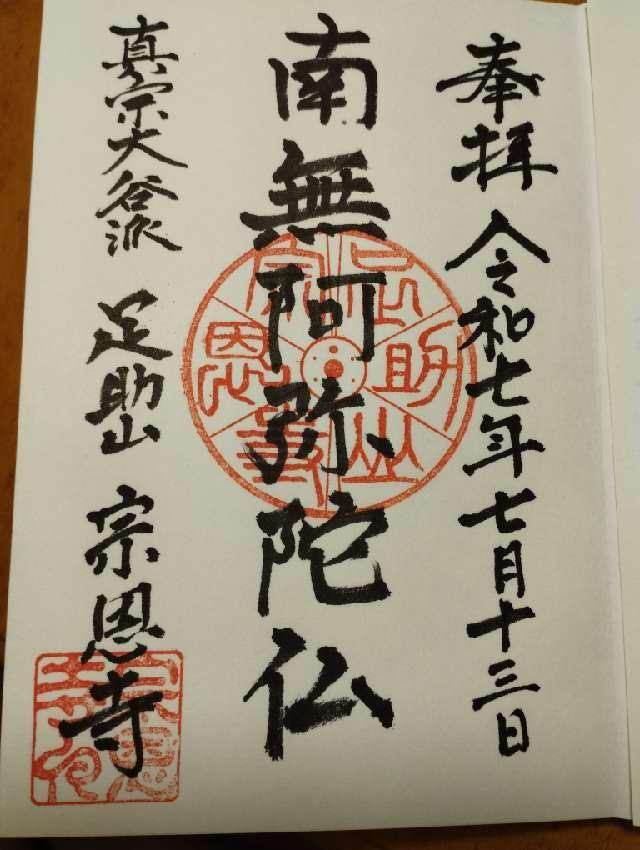 奉拝 令和七年七月十三日
南無阿弥陀仏
真宗大谷派 足助山 宗恩寺
足助山
宗恩寺